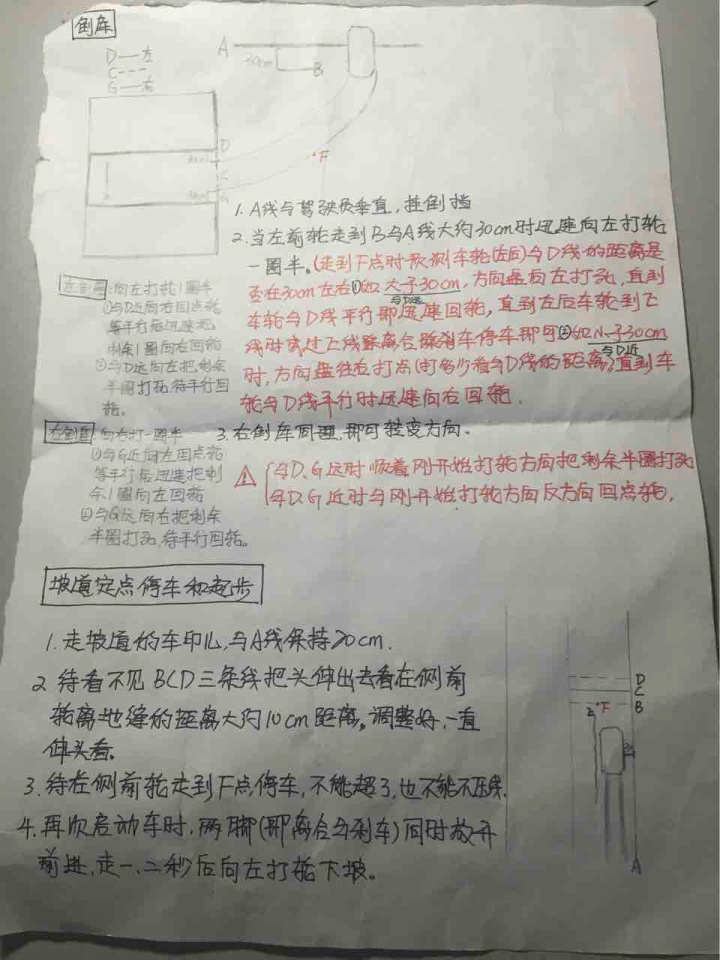 倒库
D——左
C---
G——右
A
30cm
B
D
C
G
·F
1. A线与驾驶员垂直,挂倒挡
2. 当左前轮走到B与A线大约30cm时迅速向左打轮
一圈半。(走到F点时观测车轮(左后)与D线的距离是
否在30cm左右①如大于30cm,方向盘向左打死,直到
与D远
车轮与D线平行即迅速回轮,直到左后车轮到
线时离合踩刹车停车即可②如小于30cm
与D近
时,方向盘往右打点(打多少看与D线的距离)直到车
轮与D线平行时迅速向右回轮.
3. 右倒库同理,即可转变方向。
左倒库:向左打轮1圈半
①与D近向右回点轮
等平行后迅速把
剩余1圈向右回轮
②与D远向左把剩余
半圈打死,待平行回
轮。
右倒库:向右打一圈半
①与G近向左回点轮
等平行后迅速把剩
余1圈向左回轮
②与G远向右把剩余
半圈打死,待平行回轮。
与D、G远时 顺着刚开始打轮方向把剩余半圈打死
与D、G近时与刚开始打轮方向反方向回点轮.
坡道定点停车和起步
1. 走坡道的车印儿,与A线保持30cm.
2. 待看不见BCD三条线把头伸出去看左侧前
轮离地缝的距离大约10cm距离。调整好,一直
伸头看。
3. 待左侧前轮走到F点停车,不能超3,也不能不压线.
4. 再次启动车时,两脚(即离合与刹车)同时放开
前进,走一、二秒后向左打轮下坡。
D
C
B
3
·F
A